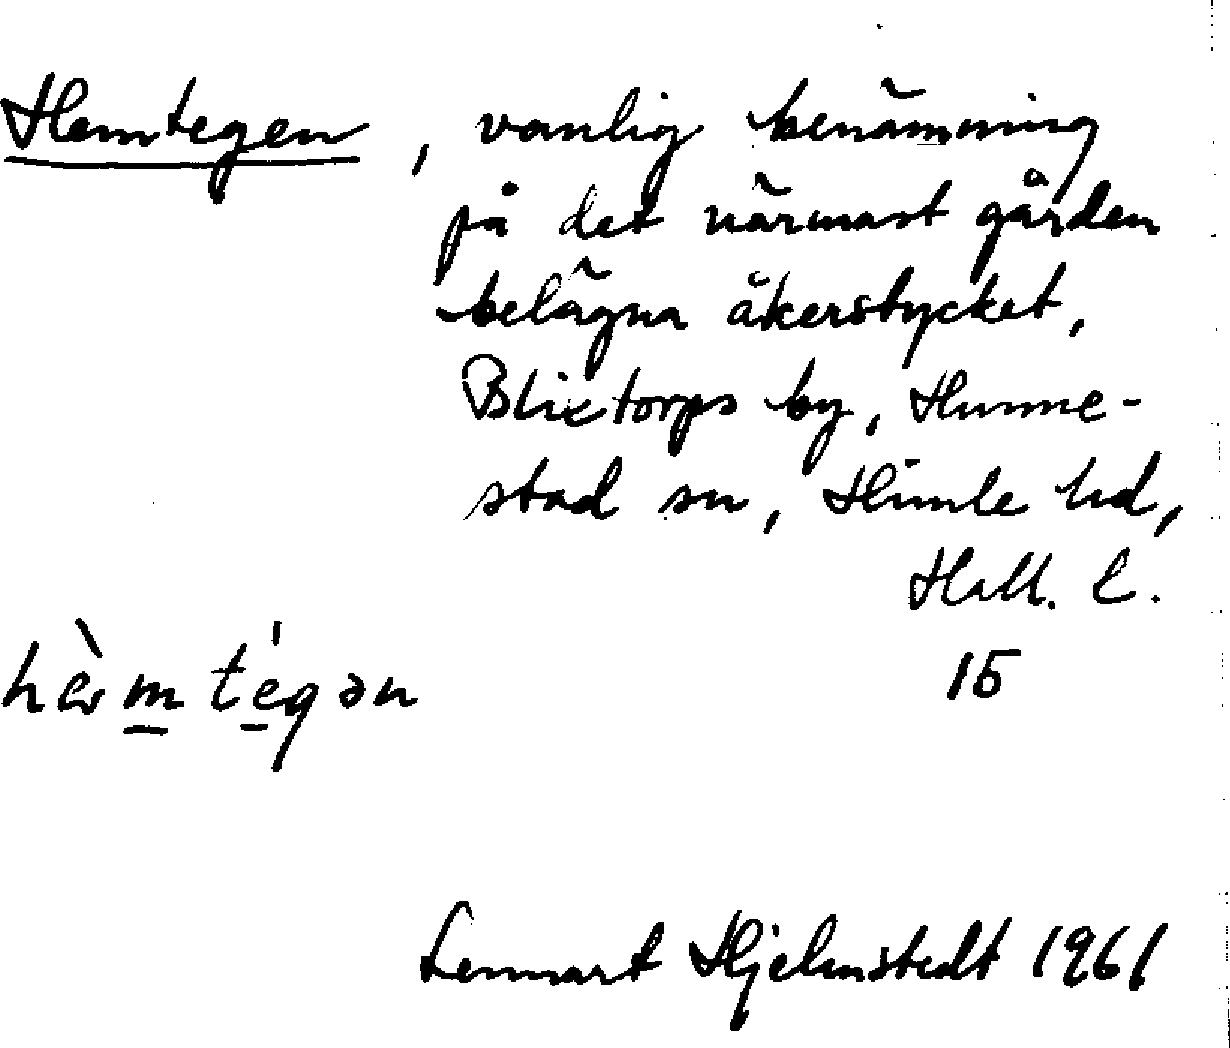 Hemtegen, vanlig benämning
på det närmast gården
belägna åkerstycket,
Blixtorps by, Hunne-
stad sn, Himle hd,
Hall. l.
15
hæ̀m tégən
Lennart Hjelmstedt 1961